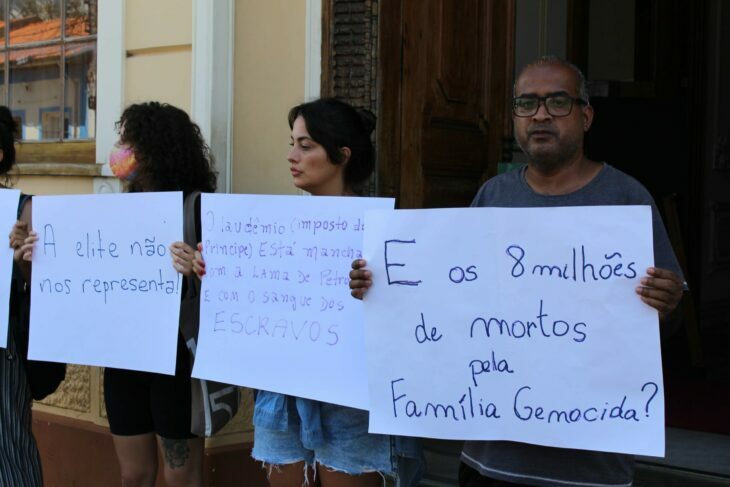 A elite não
nos representa!
O laudêmio (imposto do
Príncipe) ESTÁ MANCHA
COM A LAMA DE PETRO
E COM O SANGUE DOS
ESCRAVOS
E os 8 milhões
de mortos
pela
Família Genocida?